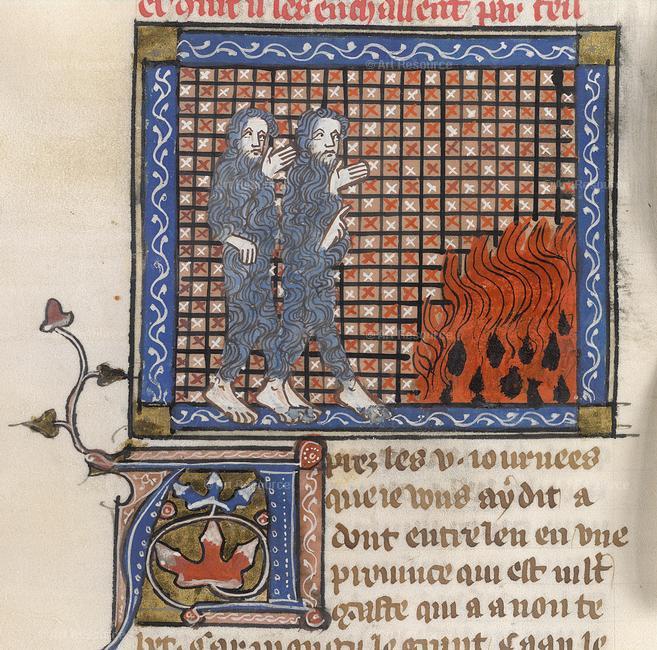 et dont il les enchassent par teil
© Art Resource
prez les v. iournees
que ie vous ay dit a
dont entre len en vne
prouince qui est mlt
gaste qui a a non te